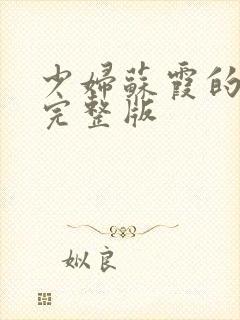 少婦蘇霞的
完整版
姒良